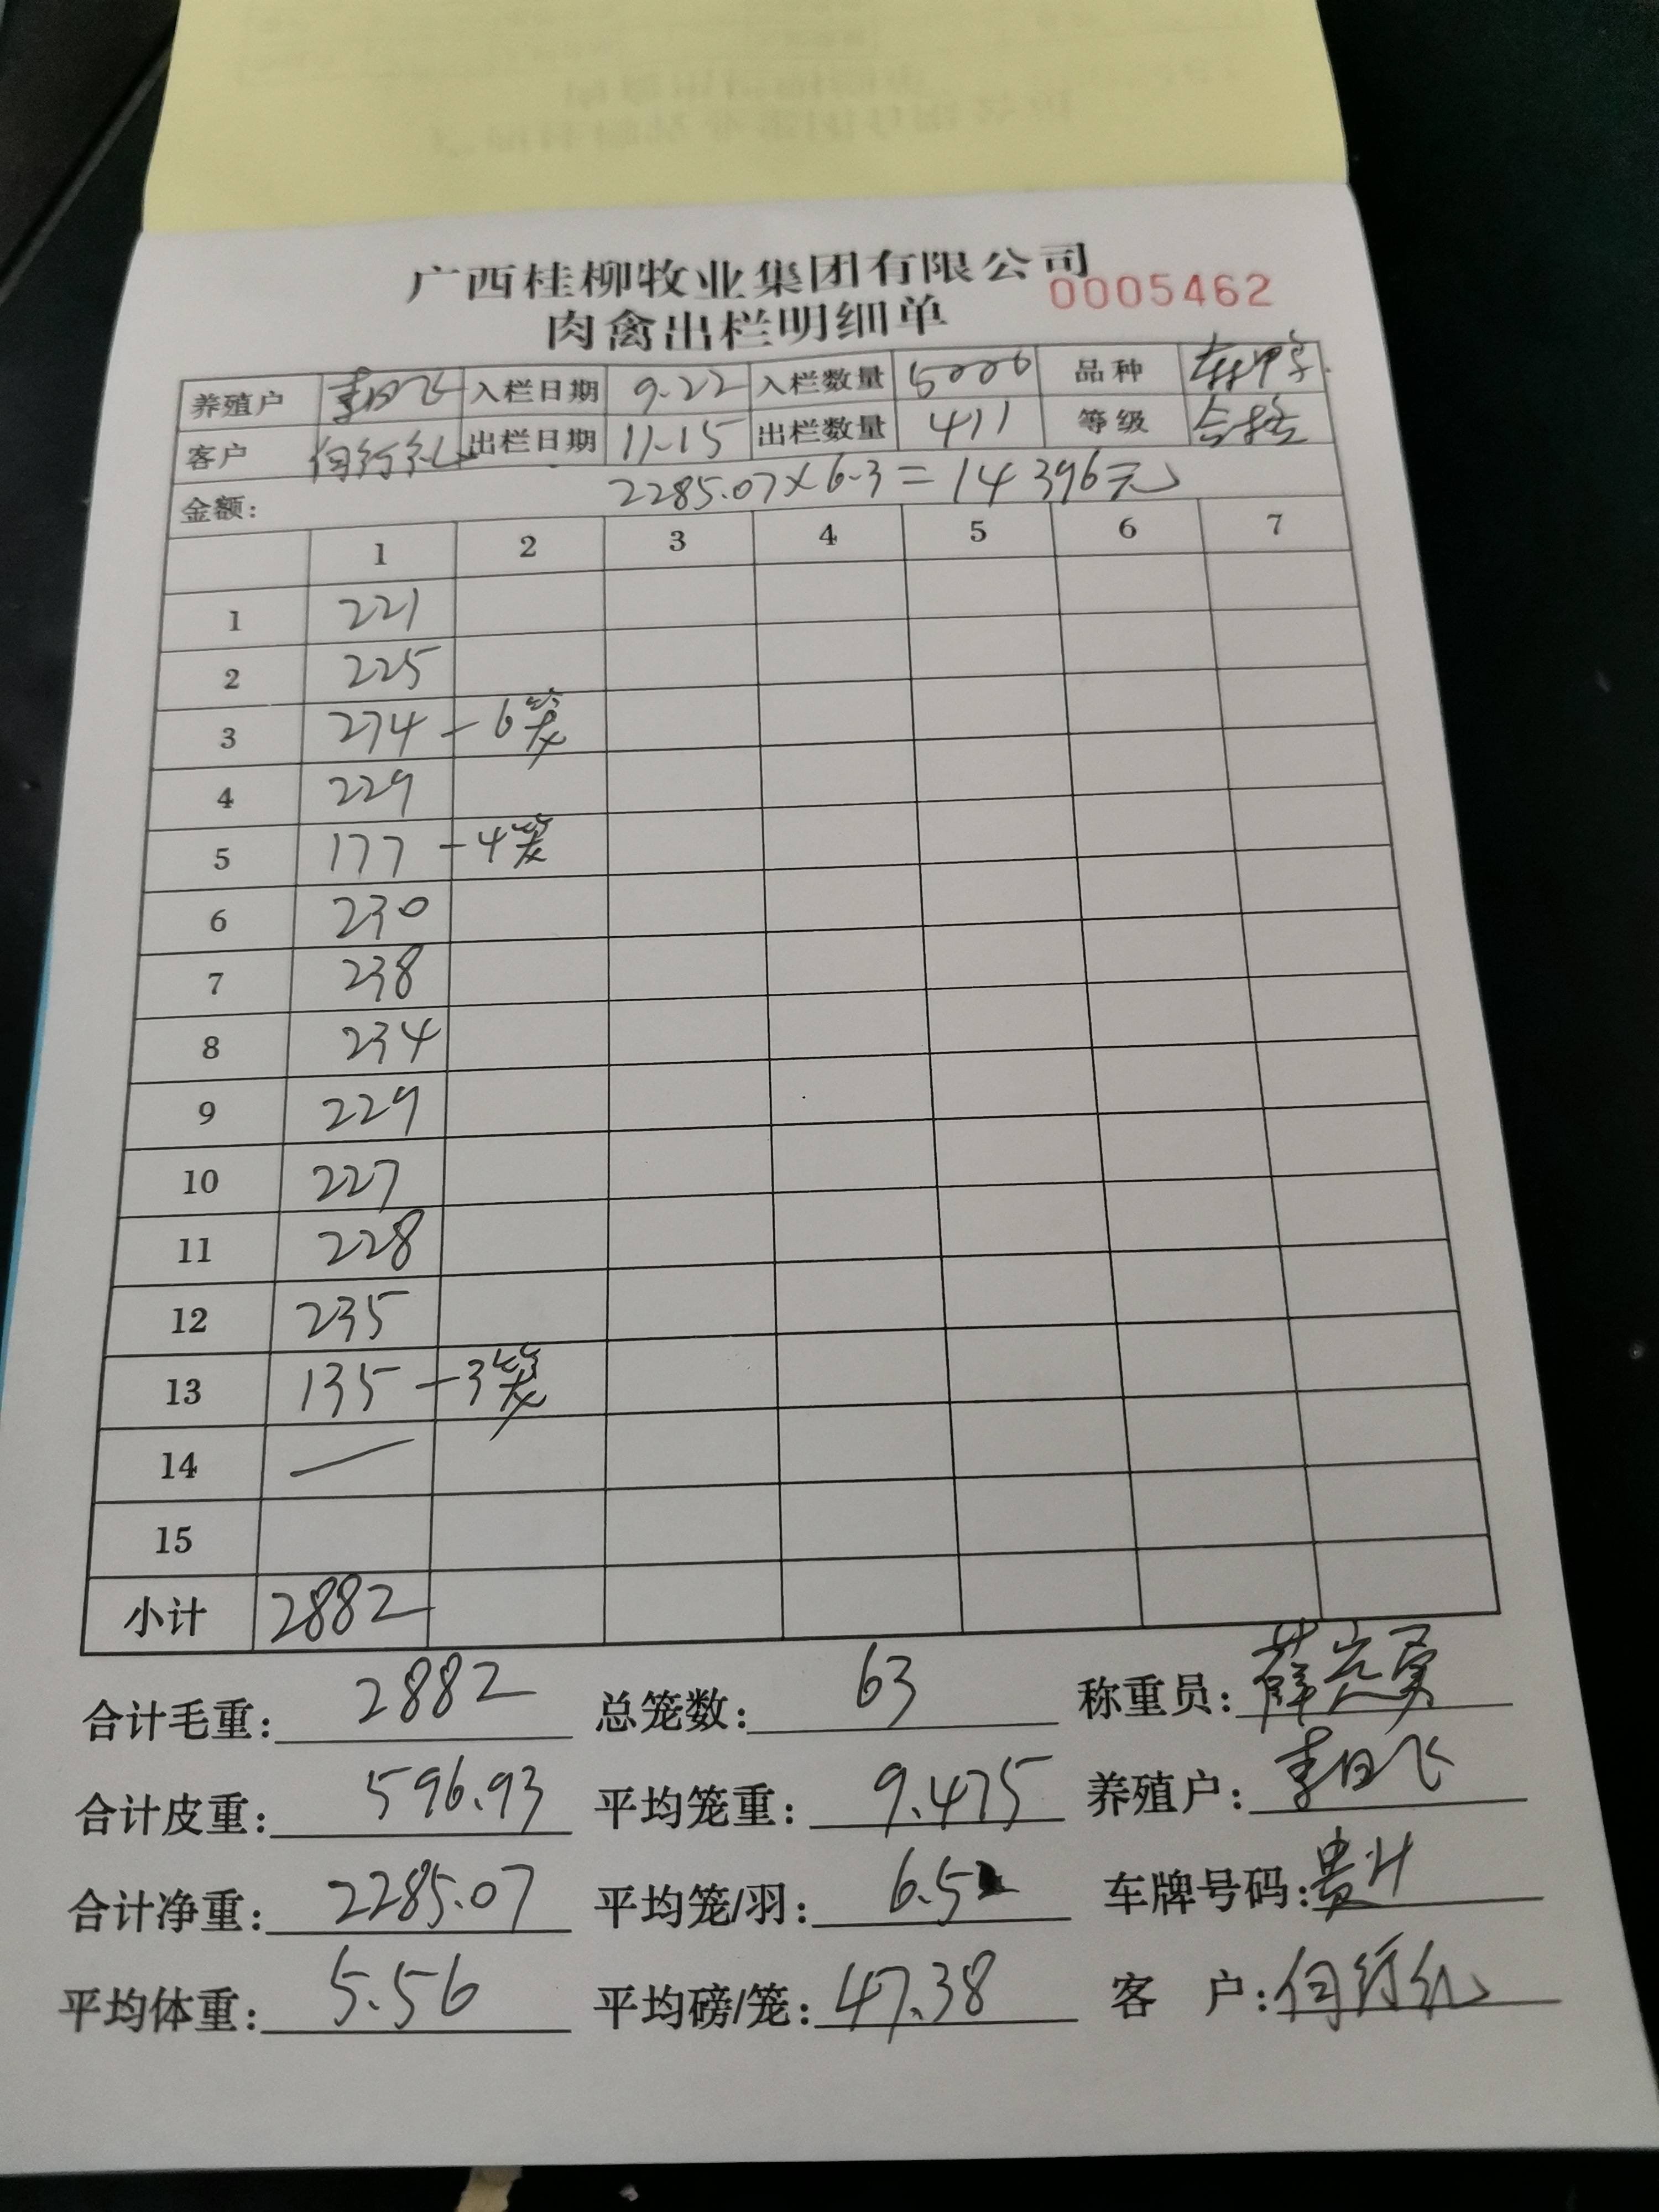 广西桂柳牧业集团有限公司
0005462
肉禽出栏明细单
养殖户 李日飞 入栏日期 9.22 入栏数量 5000 品种
客户 何行礼 出栏日期 11.15 出栏数量 411 等级 合格
金额: 2285.07×6.3=14396元
1 2 3 4 5 6 7
1 221
2 225
3 274 - 6笼
4 229
5 177 - 4笼
6 230
7 238
8 234
9 229
10 227
11 228
12 235
13 135 - 3笼
14 —
15
小计 2882
合计毛重: 2882 总笼数: 63 称重员:
合计皮重: 596.93 平均笼重: 9.475 养殖户: 李日飞
合计净重: 2285.07 平均笼/羽: 6.52 车牌号码:
平均体重: 5.56 平均磅/笼: 47.38 客 户: 何行礼